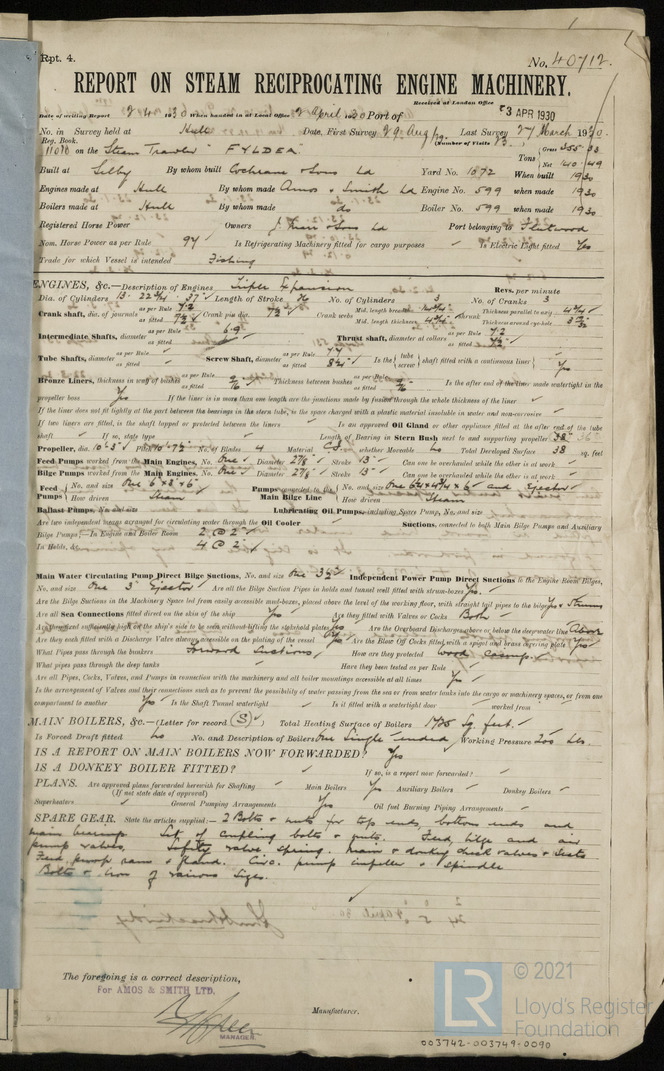 Rpt. 4.
No. 40712.
REPORT ON STEAM RECIPROCATING ENGINE MACHINERY.
Received at London Office
3 APR 1930
Date of writing Report 2 4 1930 When handed in at Local Office 2 April 1930 Port of
No. in Survey held at Hull Date, First Survey 29 Aug/29 Last Survey 27 March 1930.
Reg. Book. (Number of Visits
11070 on the Steam Trawler "FYLDEA" Tons Gross 355.33 Net 140.49
Built at Selby By whom built Cochrane & Sons Ld Yard No. 1072 When built 1930
Engines made at Hull By whom made Amos & Smith Ld Engine No. 599 when made 1930
Boilers made at Hull By whom made do Boiler No. 599 when made 1930
Registered Horse Power Owners J. Marr & Son Ld Port belonging to Fleetwood
Nom. Horse Power as per Rule 94 Is Refrigerating Machinery fitted for cargo purposes Is Electric Light fitted Yes
Trade for which Vessel is intended Fishing
ENGINES, &c.—Description of Engines Triple Expansion Revs. per minute
Dia. of Cylinders 13. 22 3/4 37 Length of Stroke No. of Cylinders 3 No. of Cranks 3
Crank shaft, dia. of journals as per Rule 7.2 as fitted 7 1/2 Crank pin dia. 7 1/2 Crank webs Mid. length breadth Mid. length thickness 4 3/4 shrunk Thickness parallel to axis 4 3/4 Thickness around eye-hole
Intermediate Shafts, diameter as per Rule 6.9 as fitted Thrust shaft, diameter at collars as per Rule 7.2 as fitted
Tube Shafts, diameter as per Rule as fitted Screw Shaft, diameter as per Rule as fitted Is the tube screw shaft fitted with a continuous liner Yes
Bronze Liners, thickness in way of bushes as per Rule as fitted Thickness between bushes as per Rule as fitted Is the after end of the liner made watertight in the
propeller boss Yes If the liner is in more than one length are the junctions made by fusion through the whole thickness of the liner
If the liner does not fit tightly at the part between the bearings in the stern tube, is the space charged with a plastic material insoluble in water and non-corrosive
If two liners are fitted, is the shaft lapped or protected between the liners Is an approved Oil Gland or other appliance fitted at the after end of the tube
shaft If so, state type Length of Bearing in Stern Bush next to and supporting propeller 36"
Propeller, dia. No. of Blades 4 Material C.I. whether Moveable no Total Developed Surface 38 sq. feet
Feed Pumps worked from the Main Engines, No. One Diameter 2 7/8" Stroke 13" Can one be overhauled while the other is at work
Bilge Pumps worked from the Main Engines, No. One Diameter 2 7/8" Stroke 13" Can one be overhauled while the other is at work
Feed Pumps No. and size One 6 x 8 x 6 How driven Steam Pumps connected to the Main Bilge Line No. and size and Ejector How driven Steam
Ballast Pumps, No. and size Lubricating Oil Pumps, including Spare Pump, No. and size
Are two independent means arranged for circulating water through the Oil Cooler Suctions, connected to both Main Bilge Pumps and Auxiliary
Bilge Pumps;—In Engine and Boiler Room 2 @ 2"
In Holds, &c. 4 @ 2"
Main Water Circulating Pump Direct Bilge Suctions, No. and size One 3 1/2" Independent Power Pump Direct Suctions to the Engine Room Bilges,
No. and size One 3" Ejector Are all the Bilge Suction Pipes in holds and tunnel well fitted with strum-boxes Yes.
Are the Bilge Suctions in the Machinery Space led from easily accessible mud-boxes, placed above the level of the working floor, with straight tail pipes to the bilges Yes & Strums
Are all Sea Connections fitted direct on the skin of the ship Yes Are they fitted with Valves or Cocks Both
Are they fixed sufficiently high on the ship's side to be seen without lifting the stokehold plates Yes Are the Overboard Discharges above or below the deep water line Above
Are they each fitted with a Discharge Valve always accessible on the plating of the vessel Yes Are the Blow Off Cocks fitted with a spigot and brass covering plate Yes
What Pipes pass through the bunkers Forward Suctions How are they protected Wood Casings.
What pipes pass through the deep tanks Have they been tested as per Rule
Are all Pipes, Cocks, Valves, and Pumps in connection with the machinery and all boiler mountings accessible at all times Yes
Is the arrangement of Valves and their connections such as to prevent the possibility of water passing from the sea or from water tanks into the cargo or machinery spaces, or from one
compartment to another Yes Is the Shaft Tunnel watertight Is it fitted with a watertight door worked from
MAIN BOILERS, &c.—(Letter for record (S) ) Total Heating Surface of Boilers Sq. feet.
Is Forced Draft fitted No No. and Description of Boilers One Single ended Working Pressure 200 lbs.
IS A REPORT ON MAIN BOILERS NOW FORWARDED? Yes
IS A DONKEY BOILER FITTED? If so, is a report now forwarded?
PLANS. Are approved plans forwarded herewith for Shafting Main Boilers Yes Auxiliary Boilers Donkey Boilers
(If not state date of approval)
Superheaters General Pumping Arrangements Yes Oil fuel Burning Piping Arrangements
SPARE GEAR. State the articles supplied:— 2 Bolts & nuts for top ends, bottom ends and
main bearings. Set of coupling bolts & nuts. Feed, bilge and air
pump valves. Safety valve spring. Main & donkey check valves & seats
Feed pump rams & gland. Circ. pump impeller & spindle
Bolts & iron of various sizes.
The foregoing is a correct description,
For AMOS & SMITH LTD.
MANAGER.
Manufacturer.
LR
© 2021
Lloyd's Register
Foundation
003742-003749-0090